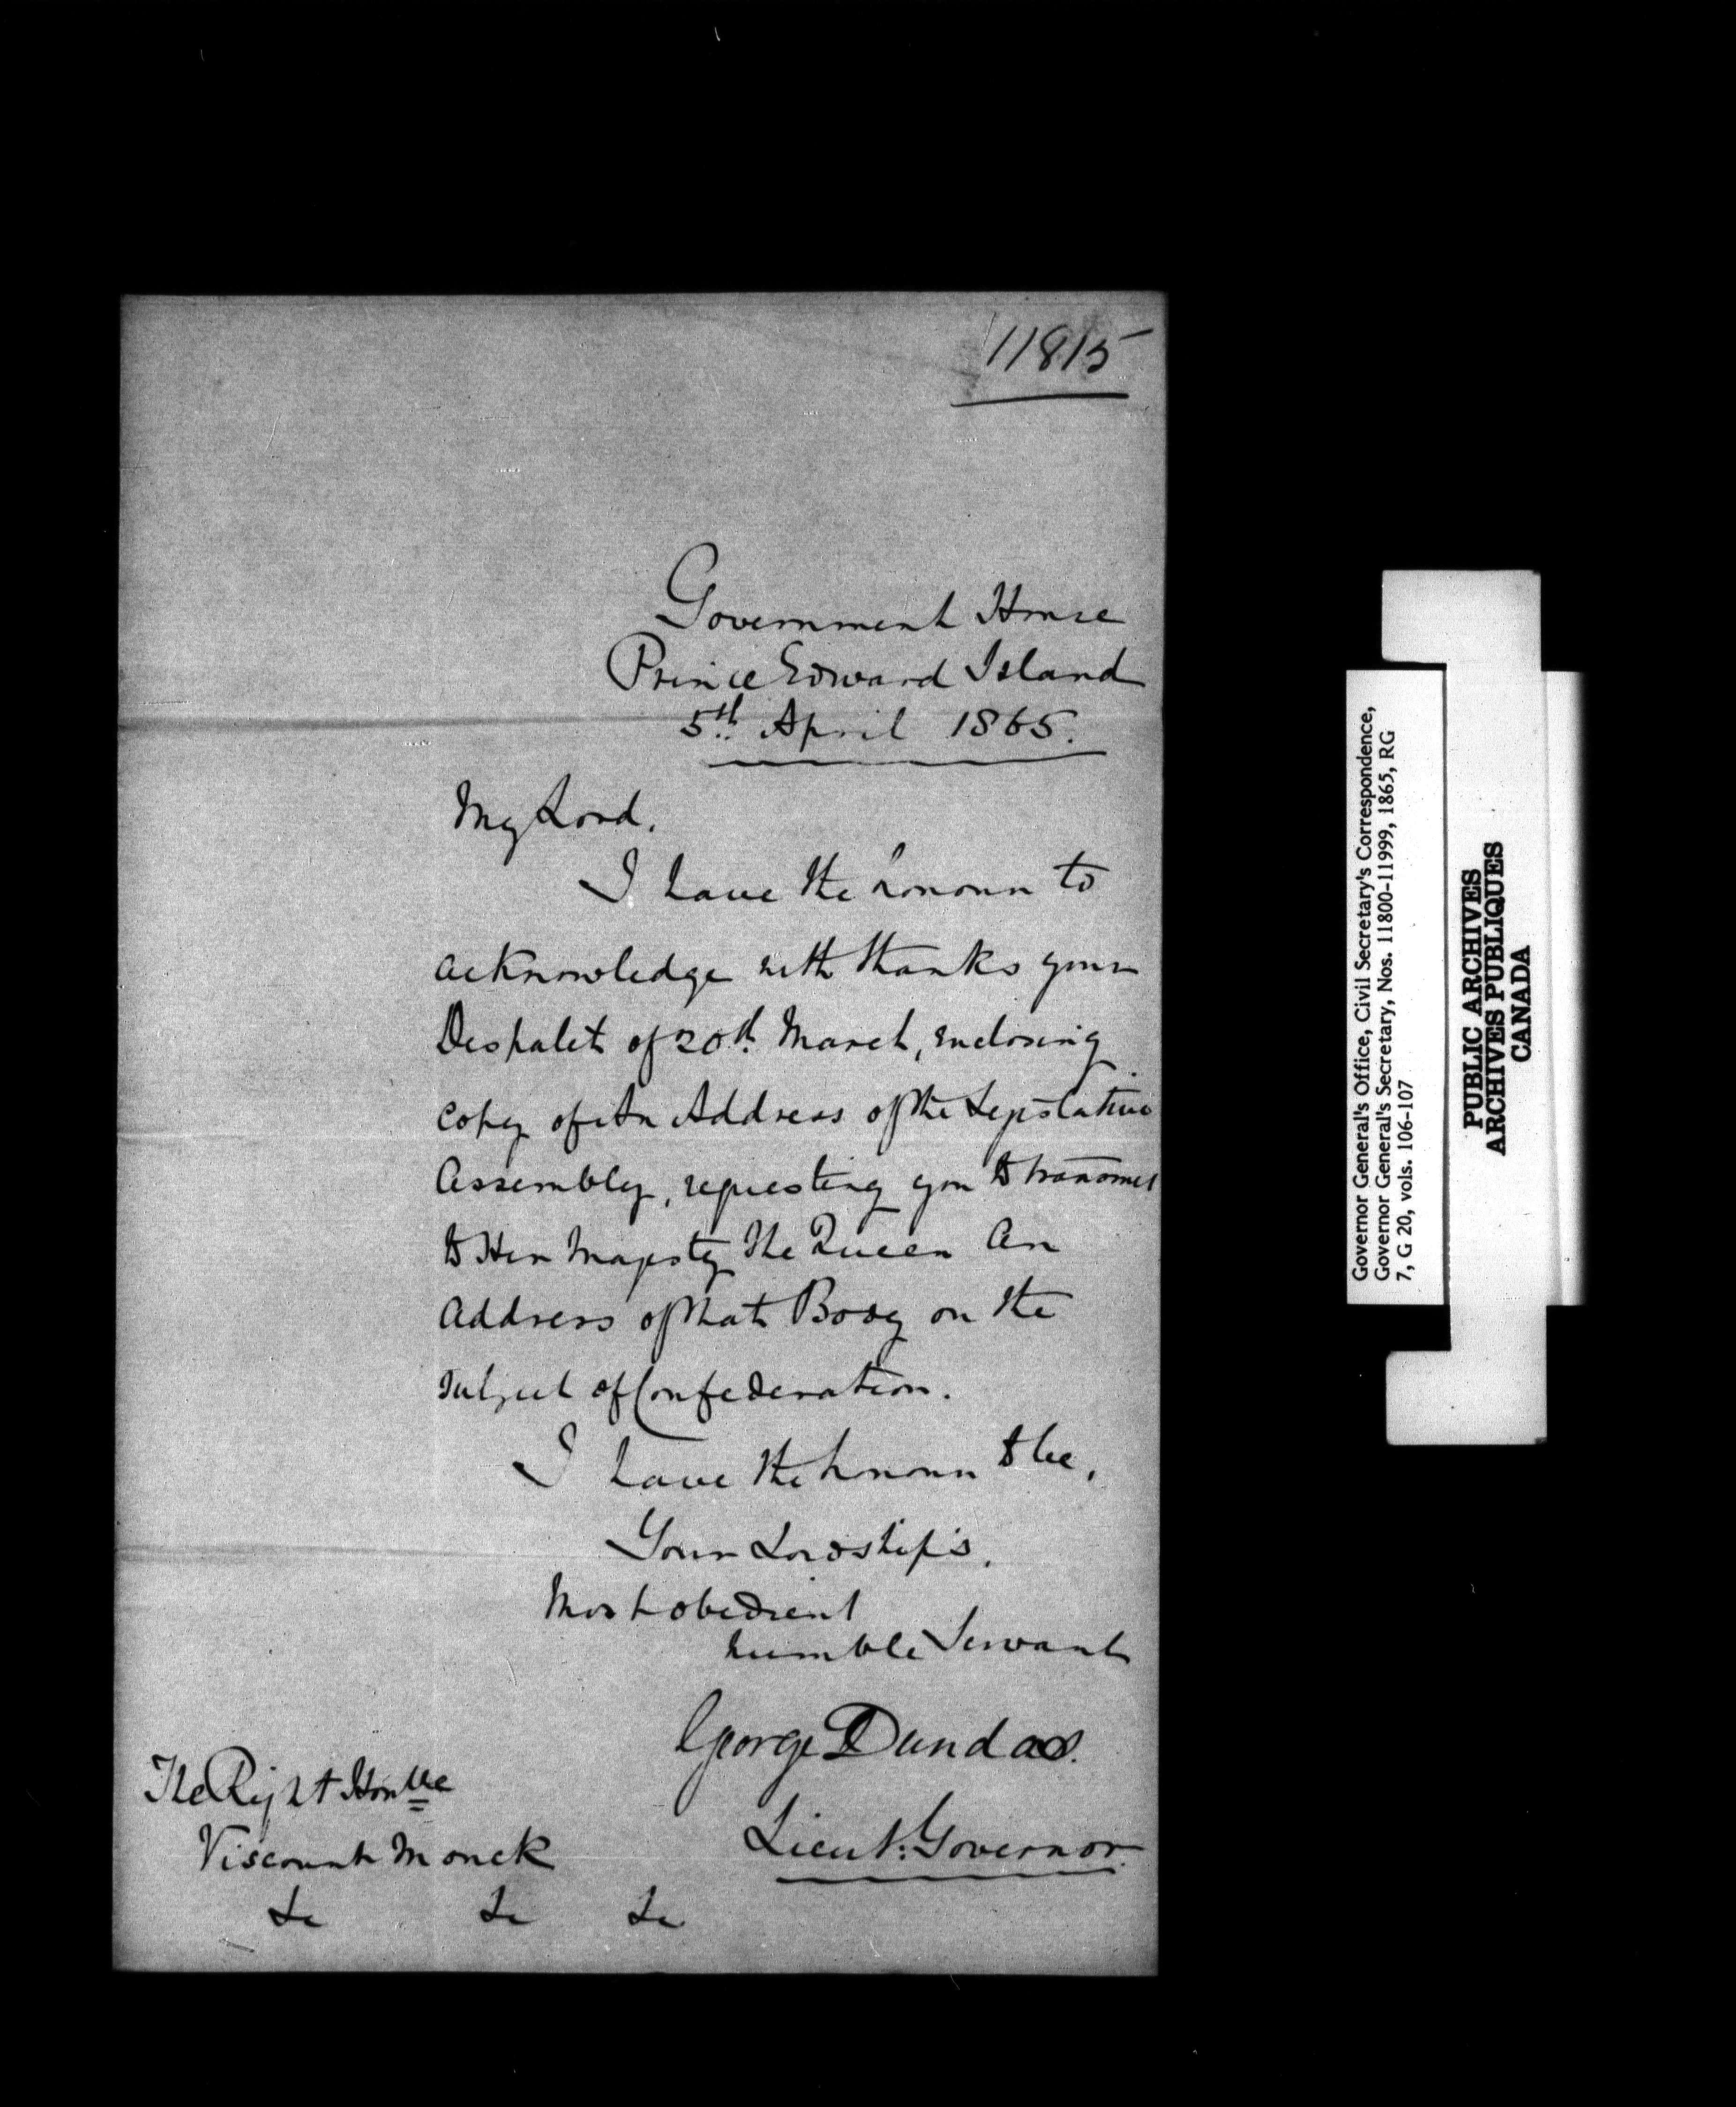 11815
Government House
Prince Edward Island
5th. April 1865.
My Lord,
I have the honour to
acknowledge with thanks your
Despatch of 20th. March, enclosing
copy of An Address of the Legislative
Assembly, requesting you to transmit
to Her Majesty The Queen An
Address of that Body on the
subject of Confederation.
I have the honour to be,
Your Lordship's,
Most obedient
humble Servant
George Dundas.
Lieut. Governor.
The Right Honble
Viscount Monck
&c &c &c
Governor General's Office, Civil Secretary's Correspondence,
Governor General's Secretary, Nos. 11800-11999, 1865, RG
7, G 20, vols. 106-107
PUBLIC ARCHIVES
ARCHIVES PUBLIQUES
CANADA